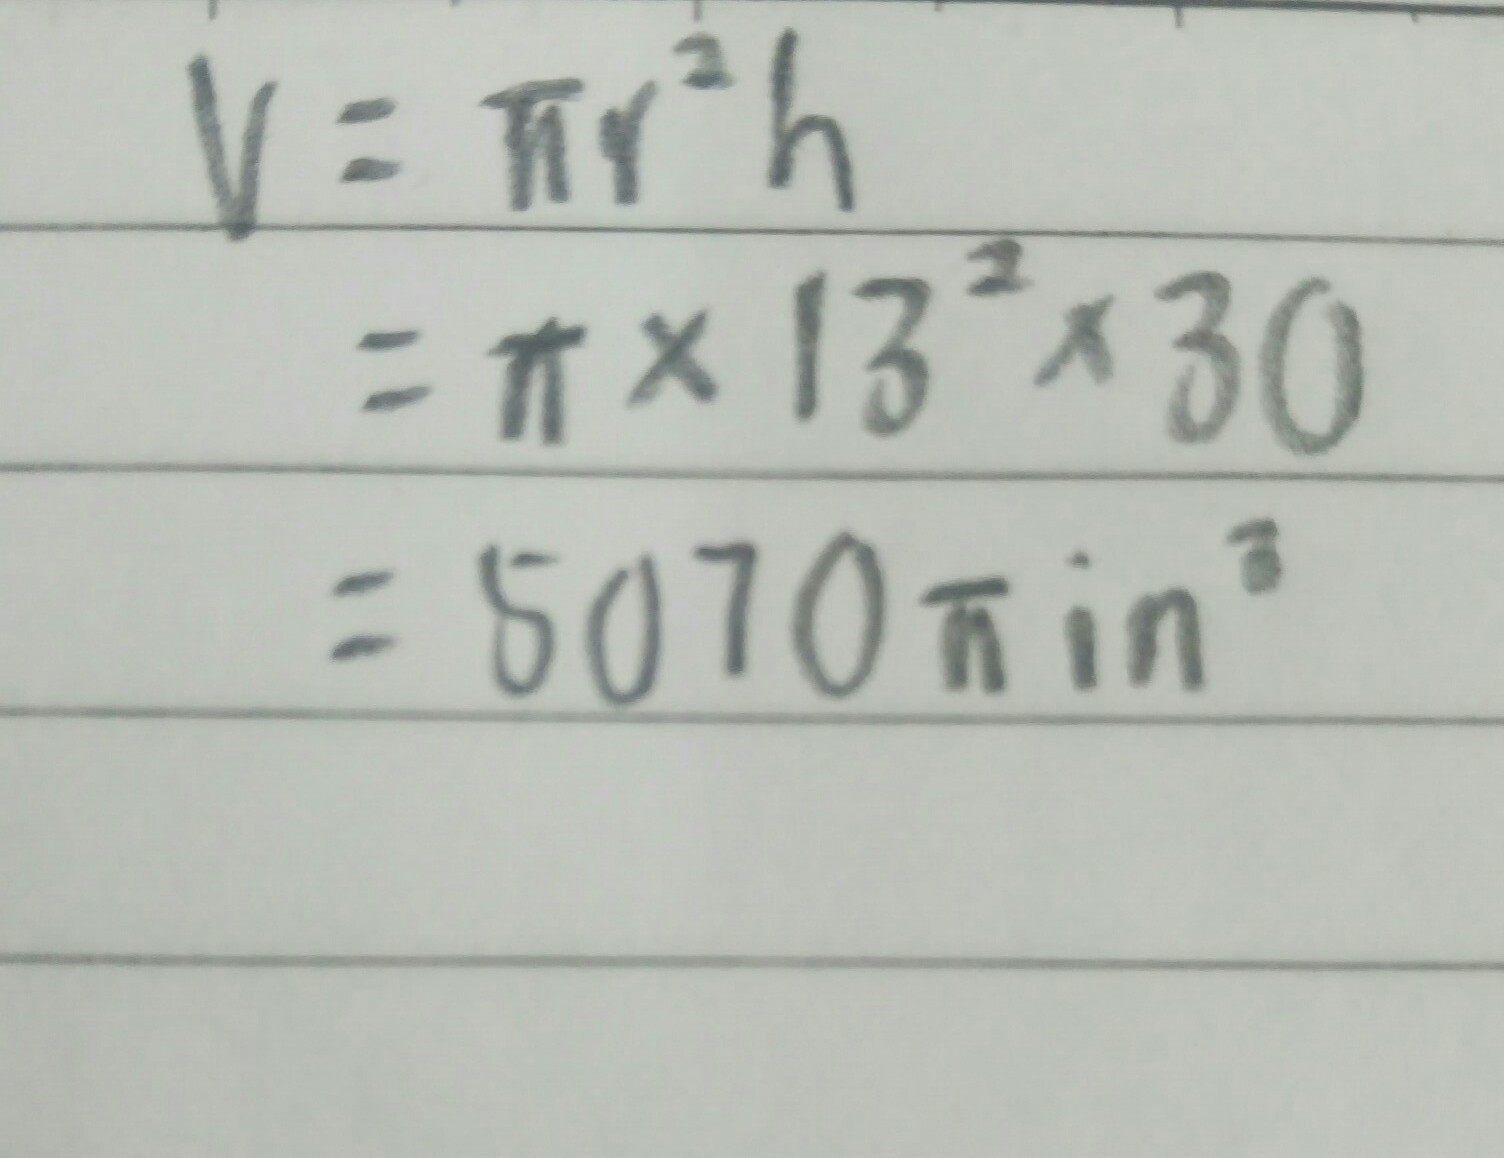 V = πr²h
= π × 13² × 30
= 5070 π in³